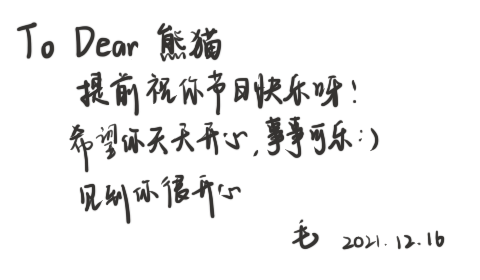 To Dear 熊猫
提前祝你节日快乐呀！
希望你天天开心，事事可乐：)
见到你很开心
毛 2021.12.16